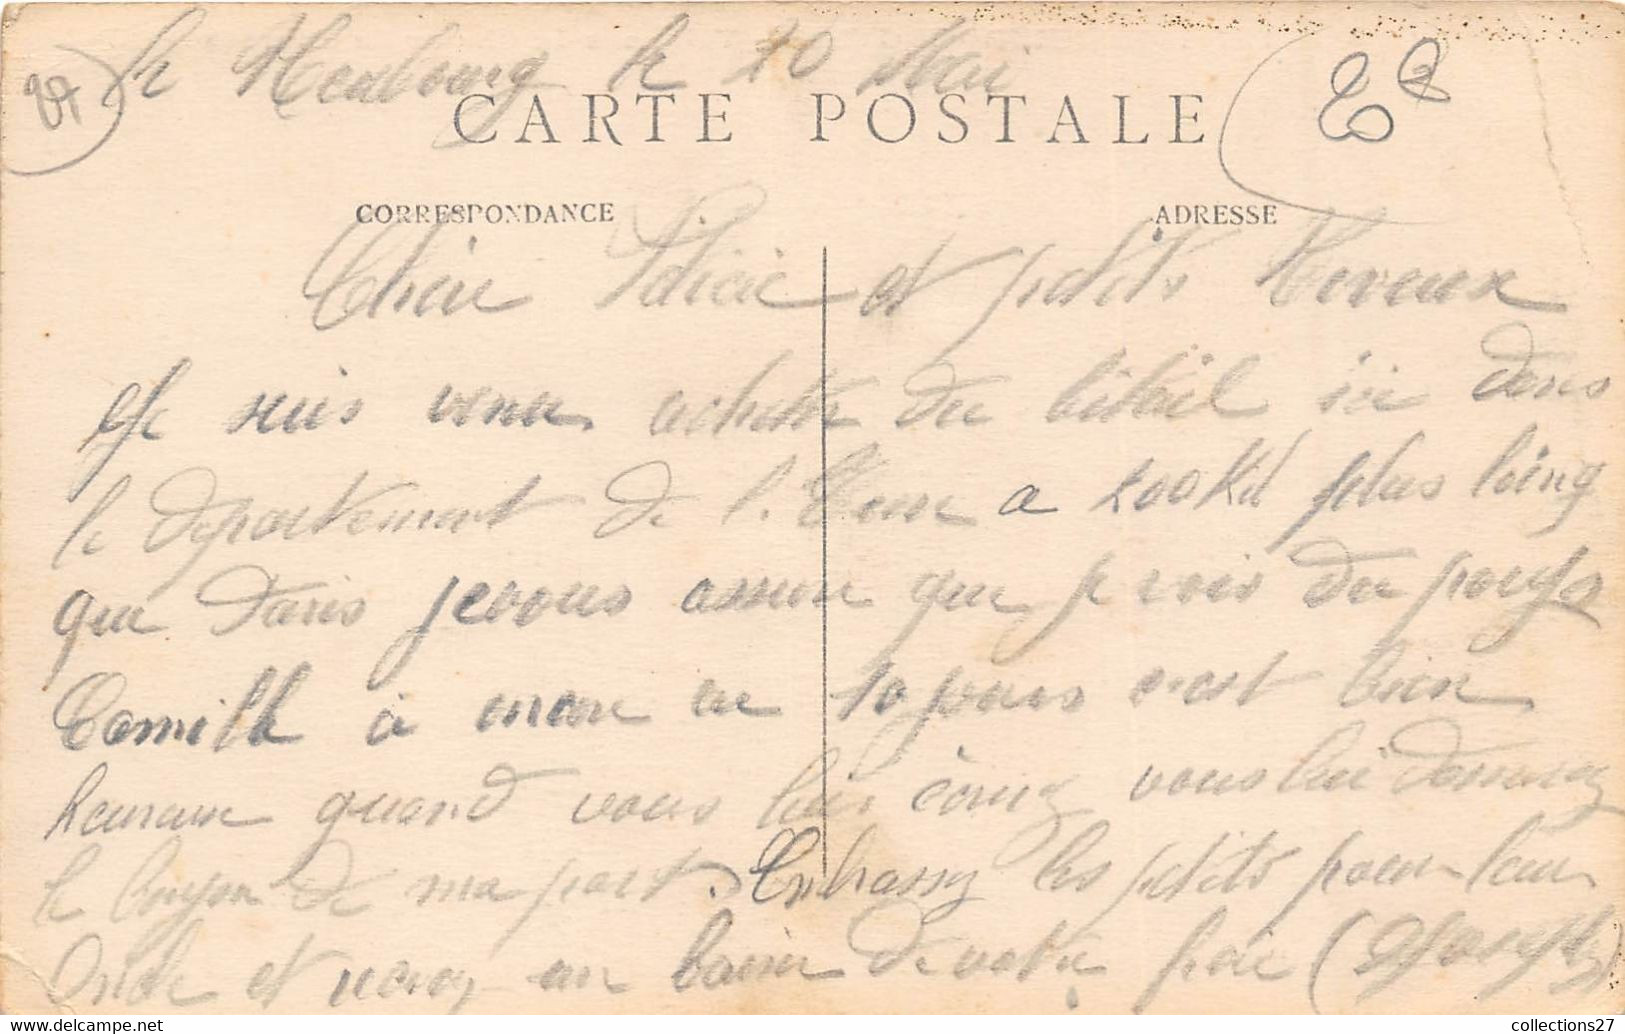 27
le Neubourg le 20 Mai
CARTE POSTALE
CORRESPONDANCE
ADRESSE
Chère et petits neveux
Je suis venu acheter du bétail ici dans
le département de l'Eure a 200 Kil plus loing
que Paris je vous assure que je vois du pays
Camille à mon 10 jours c'est bien
heureux quand vous lui vous lui donnerez
le de ma part. Embrassez les petits pour leur
Oncle et un baiser de votre frère (Joseph)
collections27